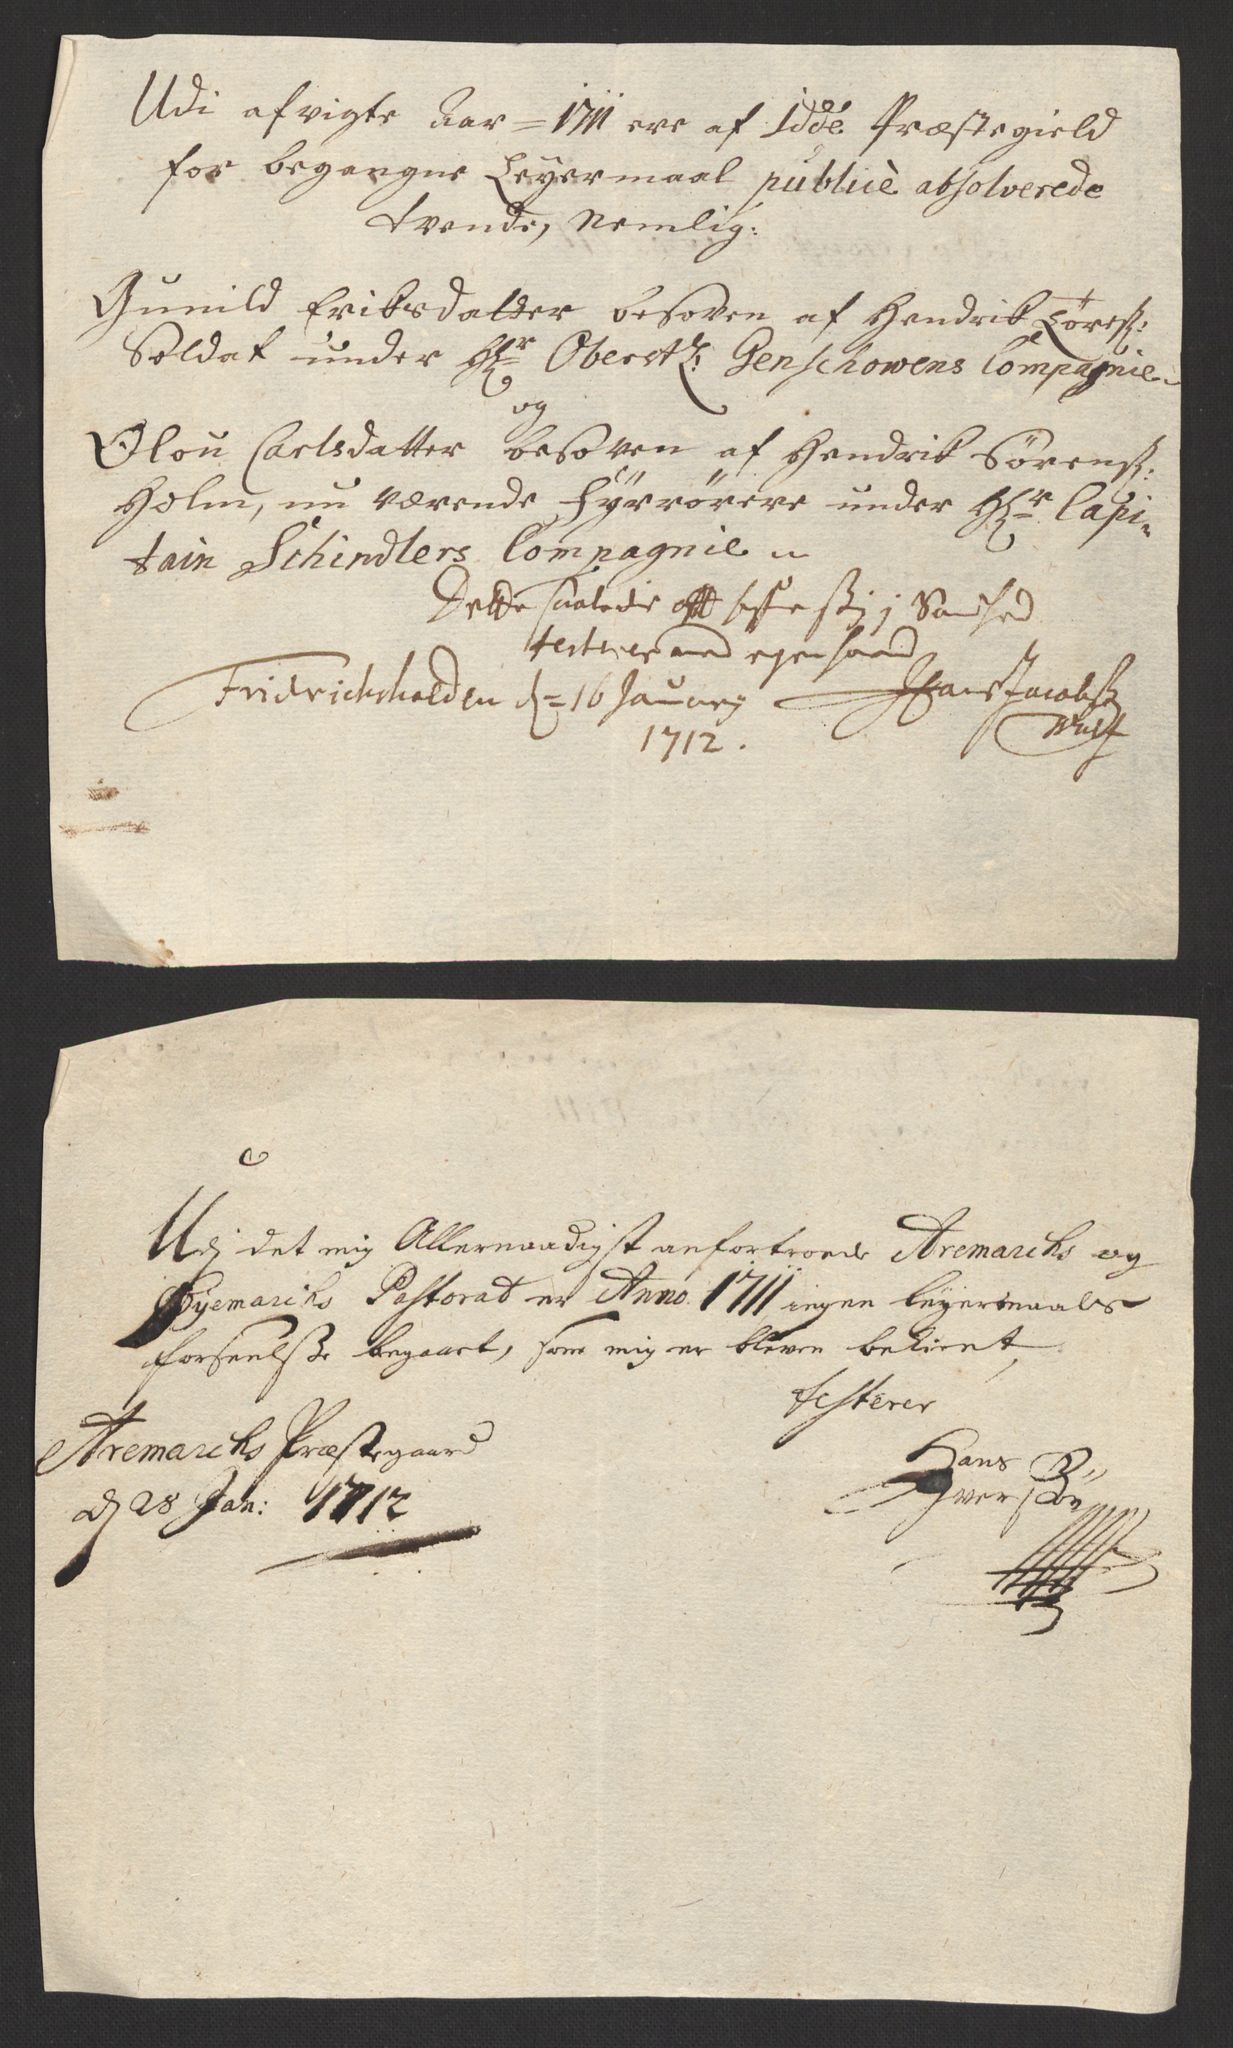 Udi afvigte Aar = 1711 ere af Idde Præstegield
for begangne Leyermaal publicè absolverede
tvende, Nemlig:
Gunild Eriksdatter besoven af Hendrik Løress:
Soldat under Hr Oberstl: Genschowens Compagnie
og
Olou Carlsdatter besoven af Hendrik Sørenss:
Holm, nu værende Fyrrörere under Hr Capi-
tain Schindlers Compagnie
Dette saaledis at j Sandhed
testerer med egen haand
Fridrichshalden d = 16 January Hans Jacobss
1712. Wulf
Udj det mig Allernaadigst anfortroede Aremarchs og
Øyemarchs Pastorat er Anno 1711 ingen leyermaals
forseelsse begaaet, som mig er bleven bekient,
testerer
Aremarchs Præstegaard
d 28 Jan: 1712
Hans
Iverss